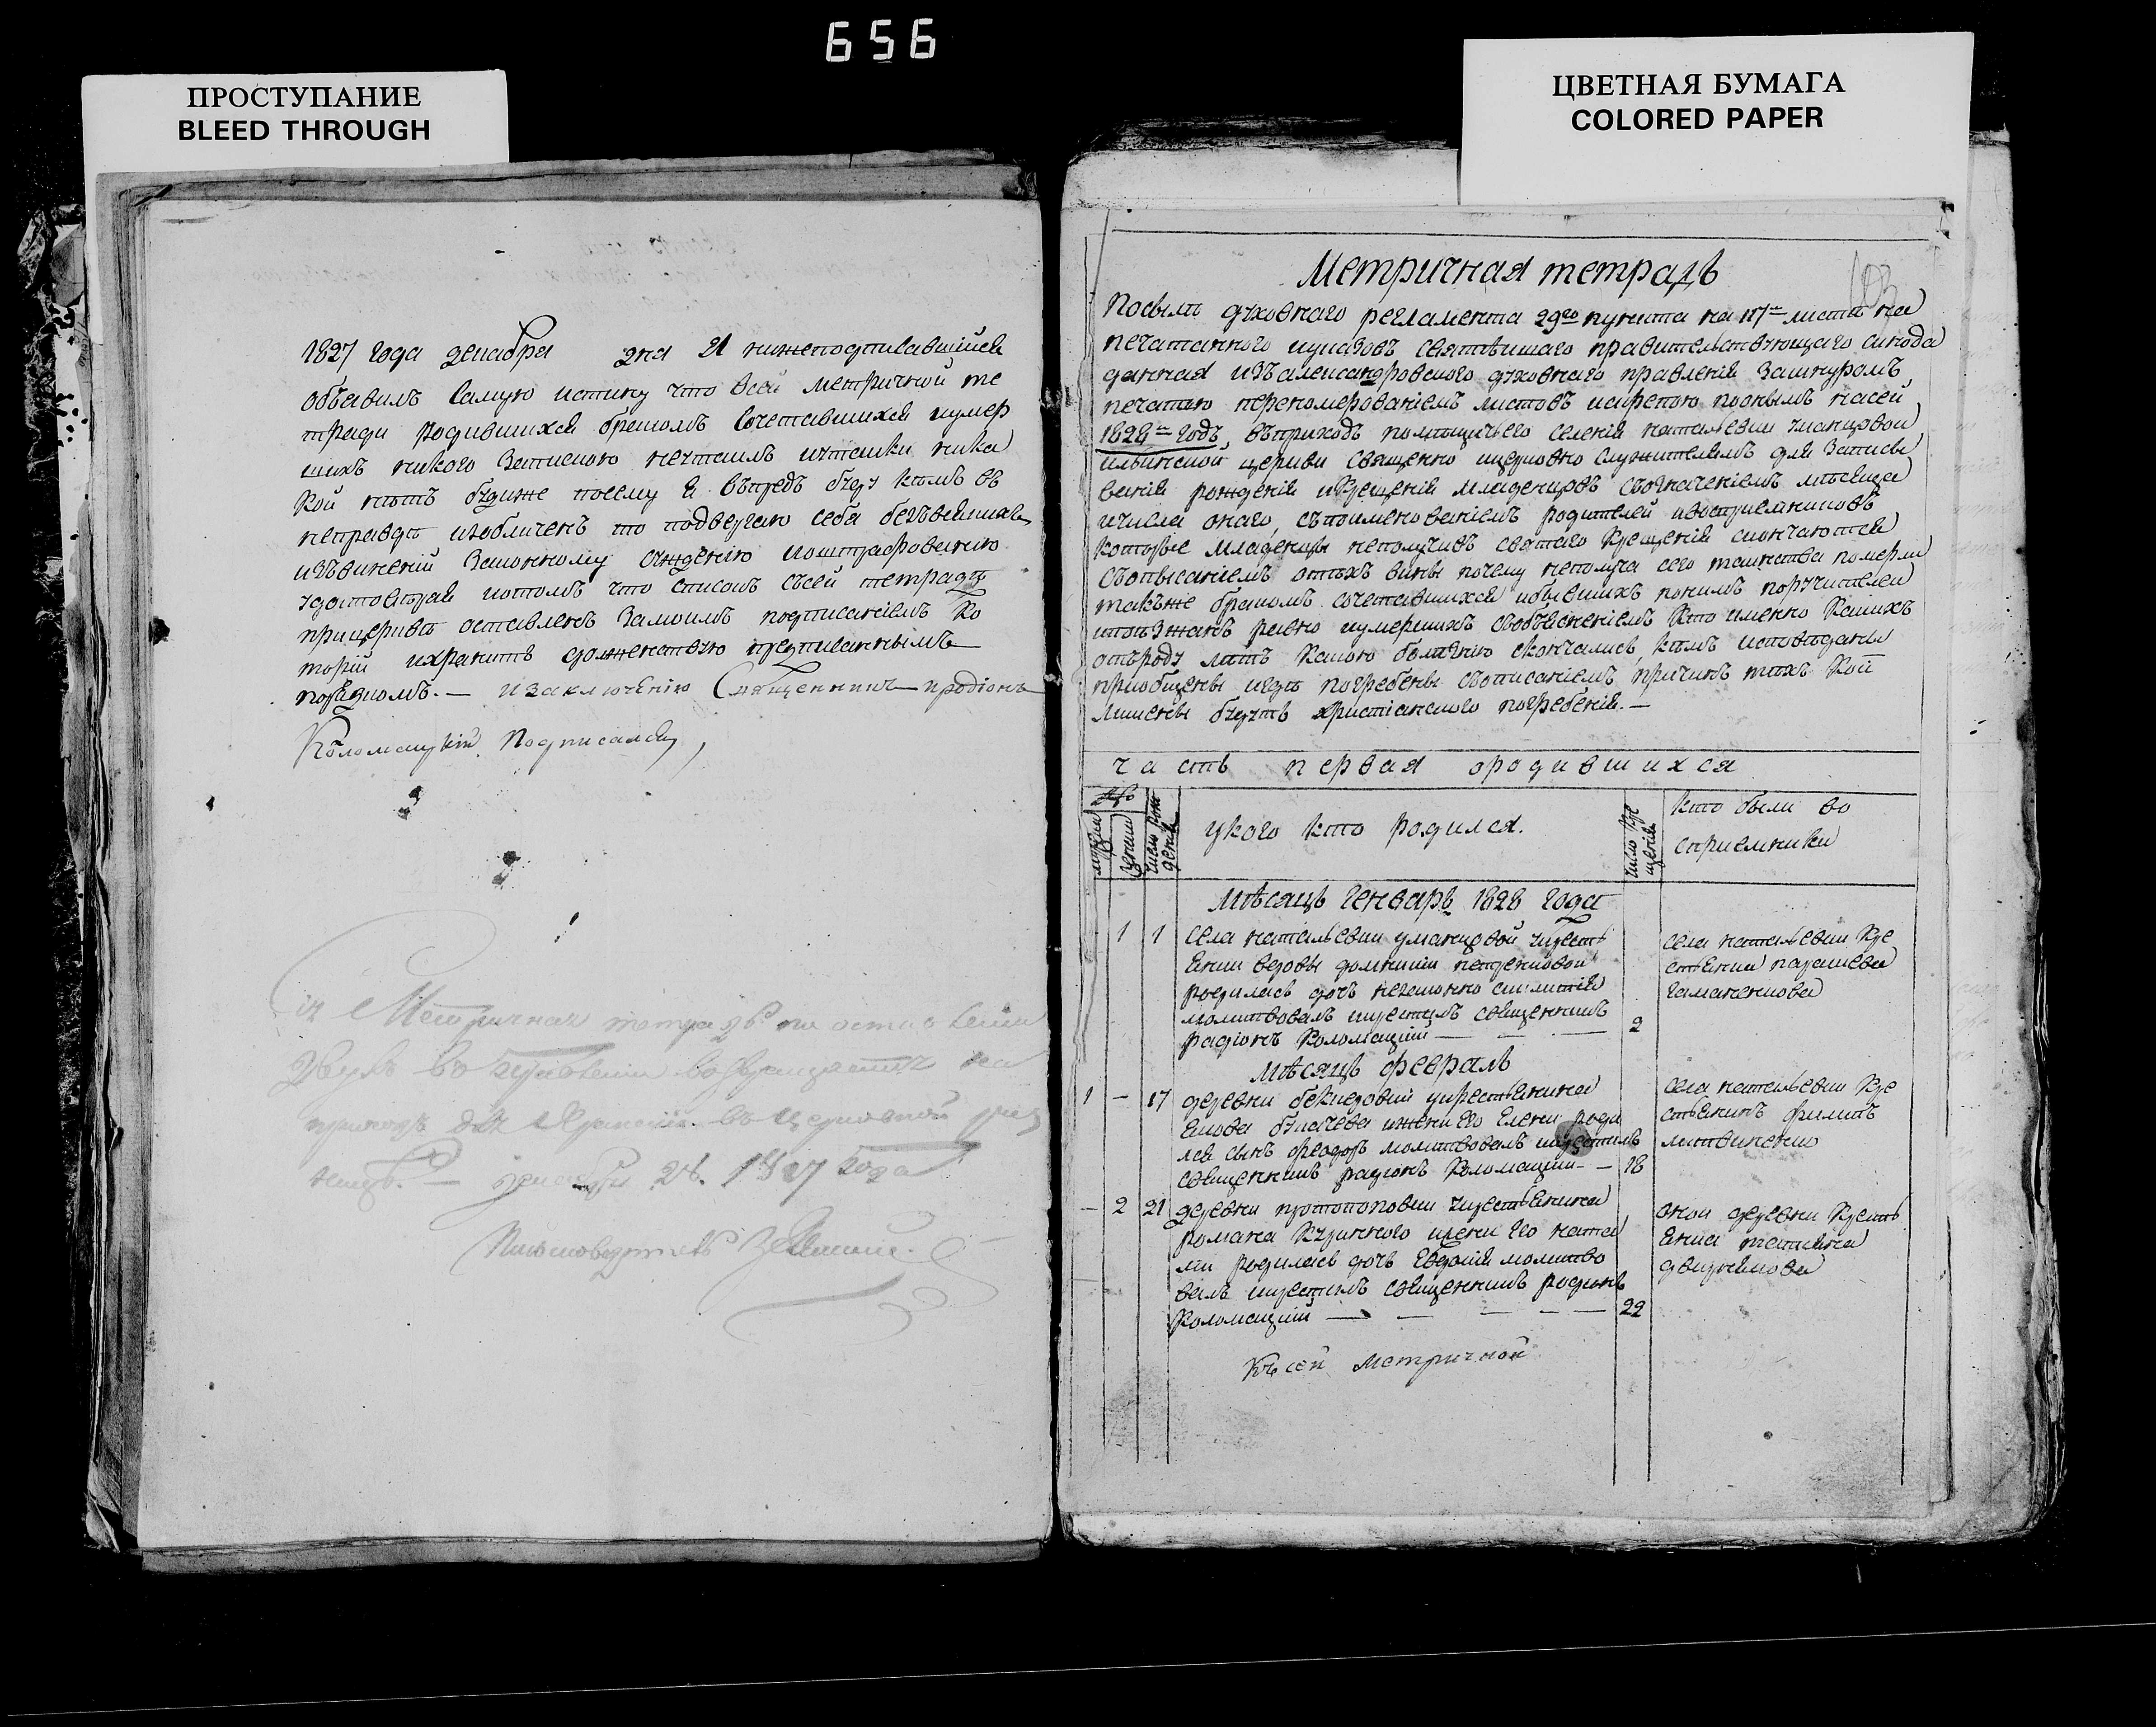 656
ПРОСТУПАНИЕ
BLEED THROUGH
ЦВЕТНАЯ БУМАГА
COLORED PAPER
1827 года декабря дня Я нижеподписавшийся
объявилъ самую истину что всей метричной те
тради родившихся бракомъ сочетавшихся иумер
шихъ никого Запискою неутаилъ
кой нѣтъ будиже посему я впредь буду кѣмъ въ
неправдѣ изобличенъ то подвергаю себя безъвсякихъ
изъвинений Законному сужденію иоштрафованію
удостовѣряя ипотомъ что списокъ съсей тетради
прицеркви оставленъ Замоимъ подписаніемъ Ко
торій ихранить долженствую предписаннымъ
порядкомъ. — изаключенію Священникъ родіонъ
Коломацкій Подписался,
Метричная тетрадь по оставленіи
въ правленіи возвращается на
приходъ для храненія въ церковной
декабря 28. 1827 года
Письмоводитель
Метричная тетрадь
103
Посилѣ духовнаго регламента 29го пункта на 117м листѣ на
печатанного иуказовъ святѣйшаго правительствующаго синода
данная изъалександровского духовнаго правленія Зашнуромъ
печатью перенумерованіемъ листовъ искрепою поонымъ насей
1828й годъ, въприходъ помѣщичьего селенія натальевки уманцовой
ильинской церкви священно ицерковно служителямъ для Записы
ванія рожденія икрещенія младенцовъ сьозначеніемъ мѣсяца
ичисла онаго, съпоименованіемъ родителей ивосприемниковъ
которые младенцы неполучивъ святаго крещенія скончаются
съописаніемъ отѣхъ вины почему неполуча сего таинства померли
такъже бракомъ сочетавшихся ибывшихъ понимъ поручителей
ипоѣзжанъ равно иумершихъ собъясненіемъ кто именно какихъ
отъроду лѣтъ какою болѣзнію скончались, кѣмъ исповѣданы
приобщены игдѣ погребены съописаніемъ причинъ тѣхъ кои
лишены будутъ христіанского погребенія. —
часть первая ородившихся
мужеска
женска
число рож
денія
укого кто родился.
число кре
щенія
кто были во
сприемники
Мѣсяцъ Генварь 1828 года
1 1 села натальевки уманцовой укресть
янки вдовы домникіи
родилась дочь незаконно
молитвовалъ икрестилъ священникъ
радіонъ Коломацкій — — — 2
села натальевки кре
стьянка параскева
гаманенкова
Мѣсяцъ февраль
1 — 17 деревни укрестьянина
якова булачева ижени его Елени роди
лся сынъ феодоръ молитвовалъ икрестилъ
священникъ радіонъ Коломацкій — — 18
села натальевки кре
стьянинъ филипъ
литвиненко
— 2 21 деревни протопоповки укрестьянина
романа ижени его ната
ліи родилась дочь Евдокія молитво
валъ икрестилъ священникъ родіонъ
Коломацкій — — — — — 22
оной деревни кресть
янка татіяна
Къ сей метричной